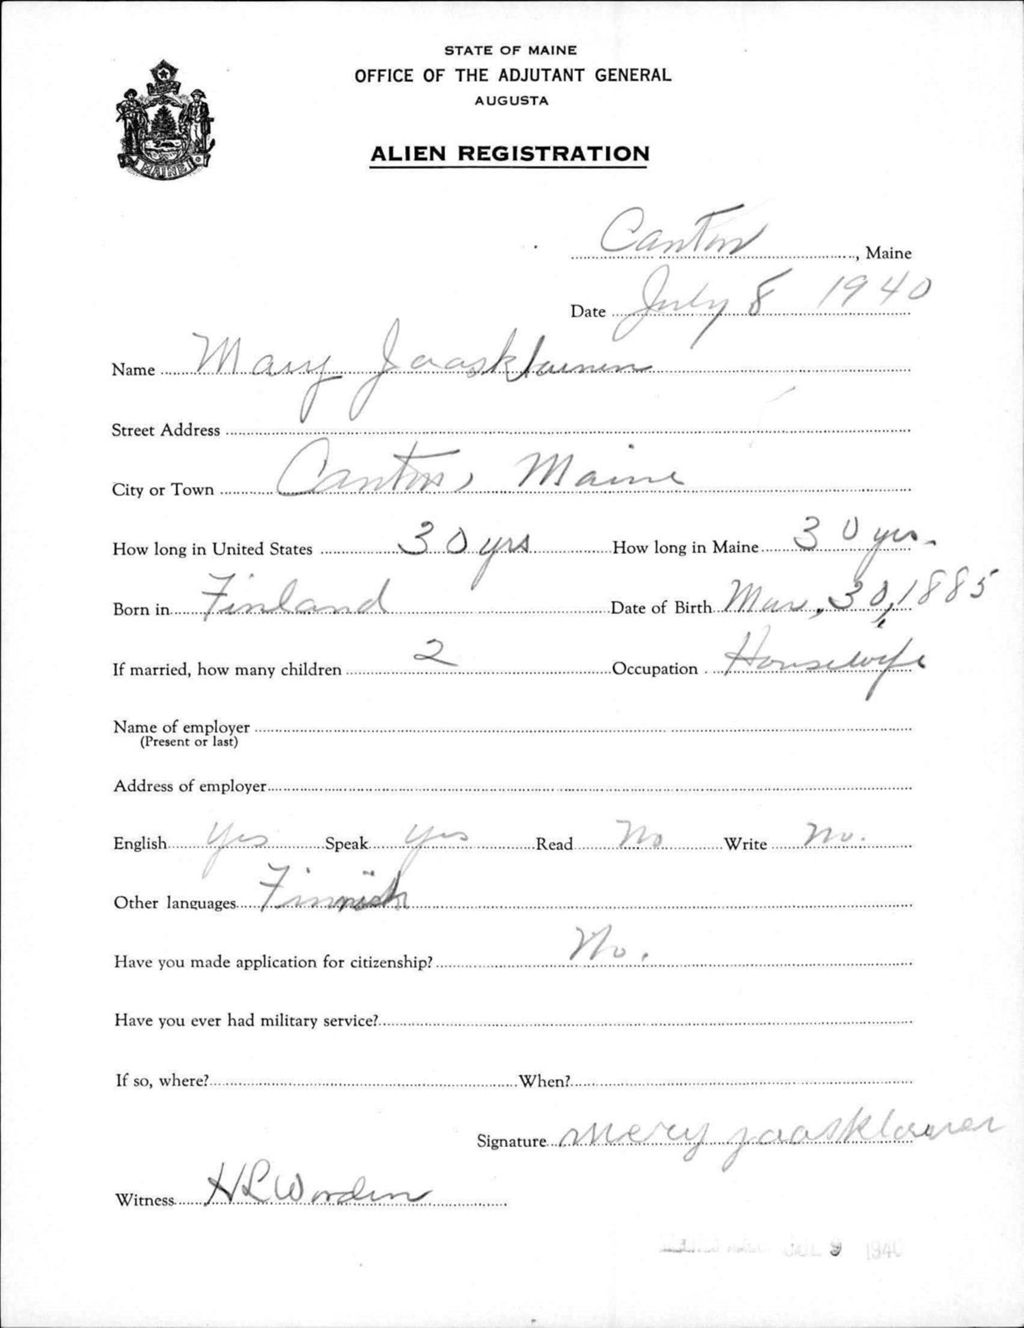 STATE OF MAINE
OFFICE OF THE ADJUTANT GENERAL
AUGUSTA
ALIEN REGISTRATION
MAINE
Canton, Maine
Date July 8 1940
Name Mary Jaasklainen
Street Address
City or Town Canton, Maine
How long in United States 30 yrs How long in Maine 30 yrs.
Born in Finland Date of Birth Mar, 30, 1885
If married, how many children 2 Occupation Housewife
Name of employer
(Present or last)
Address of employer
English Yes Speak Yes Read No Write No.
Other languages Finnish
Have you made application for citizenship? No.
Have you ever had military service?
If so, where? When?
Signature Mery Jaasklainen
Witness H L Worden
JUL 9 1940